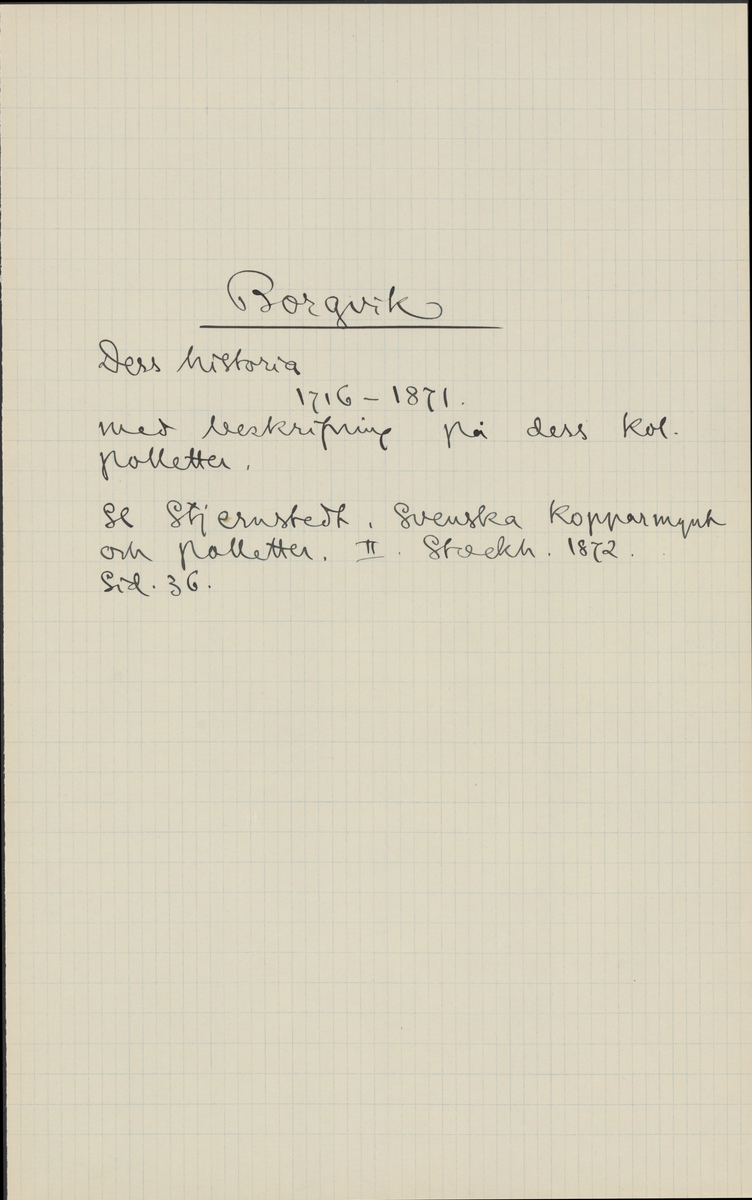 Borgvik
Dess historia
1716 – 1871.
med beskrifning på dess kol-
polletter.
Se Stjernstedt. Svenska Kopparmynt
och polletter. II. Stockh. 1872.
Sid. 36.